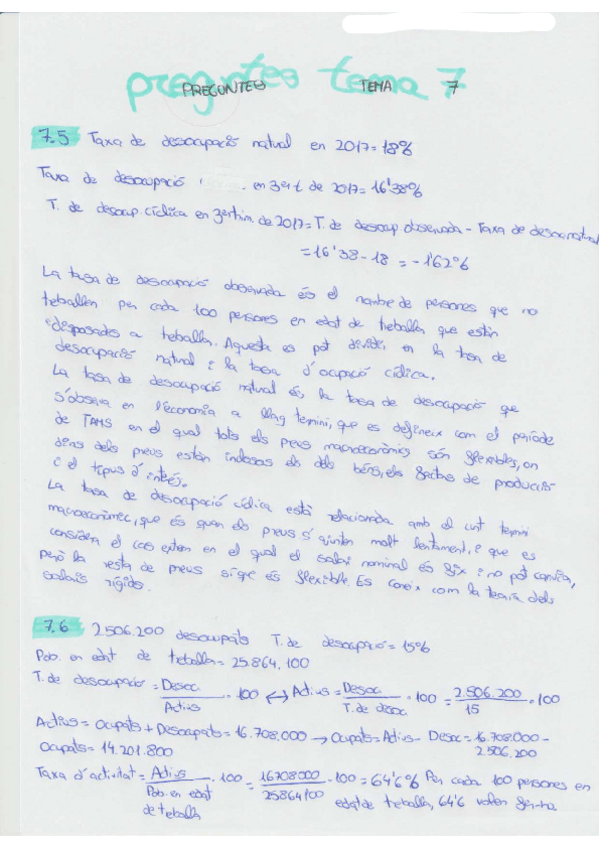 preguntes tema 7
PREGUNTES TEMA 7
7.5 Taxa de desocupació natural en 2017= 18%
Taxa de desocupació en 3er t de 2017= 16'38%
T. de desocup. cíclica en 3er trim. de 2017= T. de desocup observada - Taxa de desoc natural
= 16'38 - 18 = - 1'62%
La tasa de desocupació observada és el nombre de persones que no
treballen per cada 100 persones en edat de treballar que estàn
disposades a treballar. Aquesta es pot dividir en la tasa de
desocupació natural i la tasa d'ocupació cíclica.
La tasa de desocupació natural és, la tasa de desocupació que
s'observa en l'economia a llarg termini, que es defineix com el període
de temps en el qual tots els preus macroeconòmics són flexibles, on
dins dels preus estàn inclosos els dels béns, els factors de producció
i el tipus d'interés.
La tasa de desocupació cíclica està relacionada amb el curt termini
macroeconòmic, que és quan els preus s'ajusten molt lentament, i que es
considera el cas extrem en el qual el salari nominal és fix i no pot canviar,
però la resta de preus sigue és flexible Es coneix com la teoria dels
salaris rígids.
7.6 2.506.200 desocupats T. de desocupació= 15%
Pob. en edat de treballar= 25.864.100
T. de desocupació = Desoc / Actius · 100 ↔ Actius = Desoc / T. de desoc · 100 = 2.506.200 / 15 · 100
Actius = Ocupats + Desocupats = 16.708.000 → Ocupats = Actius - Desoc = 16.708.000 -
2.506.200
Ocupats = 14.201.800
Taxa d'activitat = Actius / Pob. en edat de treballar · 100 = 16708000 / 25864100 · 100 = 64'6% Per cada 100 persones en
edat de treballar, 64'6 volen